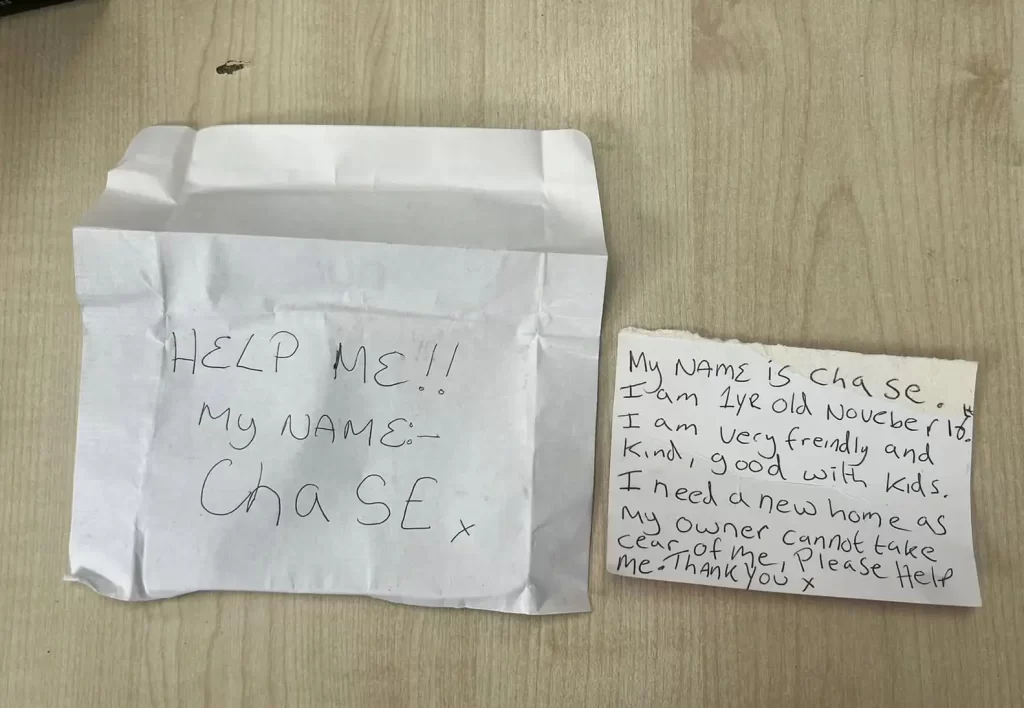 HELP ME!!
My NAME:-
ChaSE x
My NAME is chase.
I am 1ye old Noveber 16th.
I am very freindly and
kind, good with kids.
I need a new home as
my owner cannot take
cear of me, Please Help
me. Thank you x